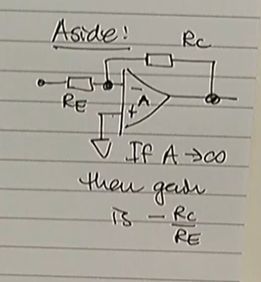 Aside:
Rc
-
A
RE
+
If A →∞
then gain
is - Rc
RE